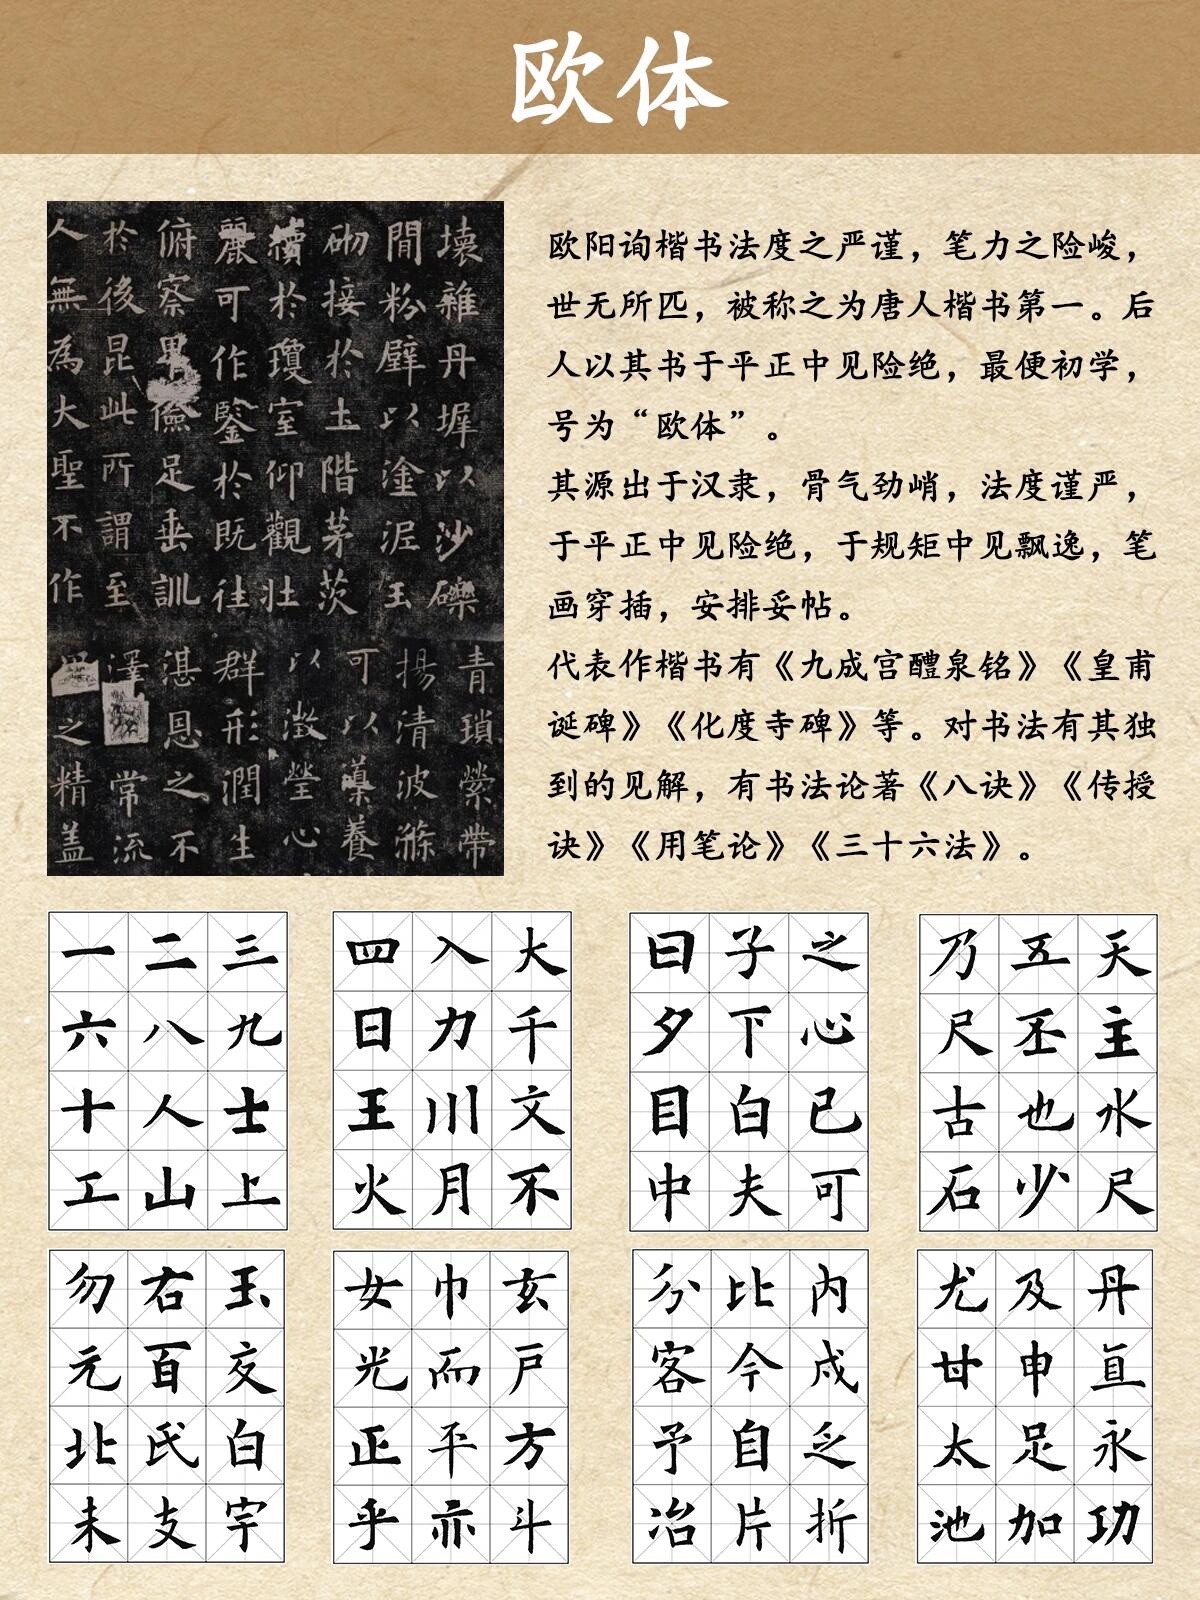 欧体
壞雜丹墀以沙礫
間粉壁以塗泥玉
砌接於土階茅茨
續於瓊室仰觀壯
麗可作鑒於既往
俯察儉足垂訓
於後昆此所謂至
人無為大聖不作
青瑣縈帶
揚清波滌
可以導養
以澂瑩心
群形潤生
湛恩之不
澤常流
之精盖
欧阳询楷书法度之严谨，笔力之险峻，
世无所匹，被称之为唐人楷书第一。后
人以其书于平正中见险绝，最便初学，
号为“欧体”。
其源出于汉隶，骨气劲峭，法度谨严，
于平正中见险绝，于规矩中见飘逸，笔
画穿插，安排妥帖。
代表作楷书有《九成宫醴泉铭》《皇甫
诞碑》《化度寺碑》等。对书法有其独
到的见解，有书法论著《八诀》《传授
诀》《用笔论》《三十六法》。
一二三
六八九
十人士
工山上
四入大
日力千
王川文
火月不
曰子之
夕下心
目白已
中夫可
乃五天
尺丕主
古也水
石少尺
勿右玉
元百交
北氏白
未支宇
女巾玄
光而戸
正平方
乎亦斗
分比内
客今成
予自乏
冶片折
尤及丹
甘申直
太足永
池加功